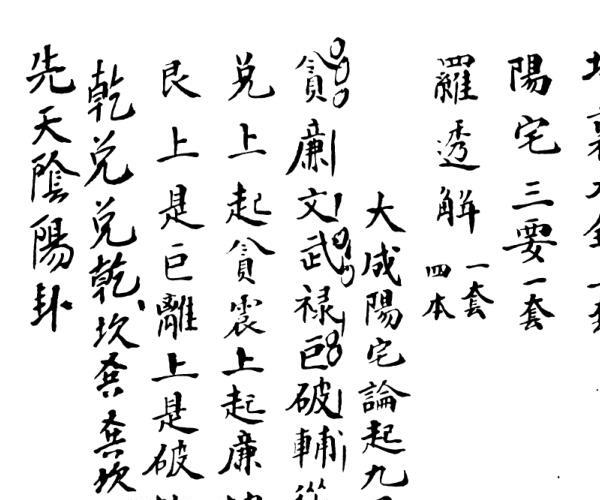 陽宅三要一套
羅透解一套四本
大咸陽宅論起九
貪廉文武禄巨破輔從
兌上起貪震上起廉
艮上是巨離上是破
乾兌兌乾坎巽巽坎
先天陰陽卦